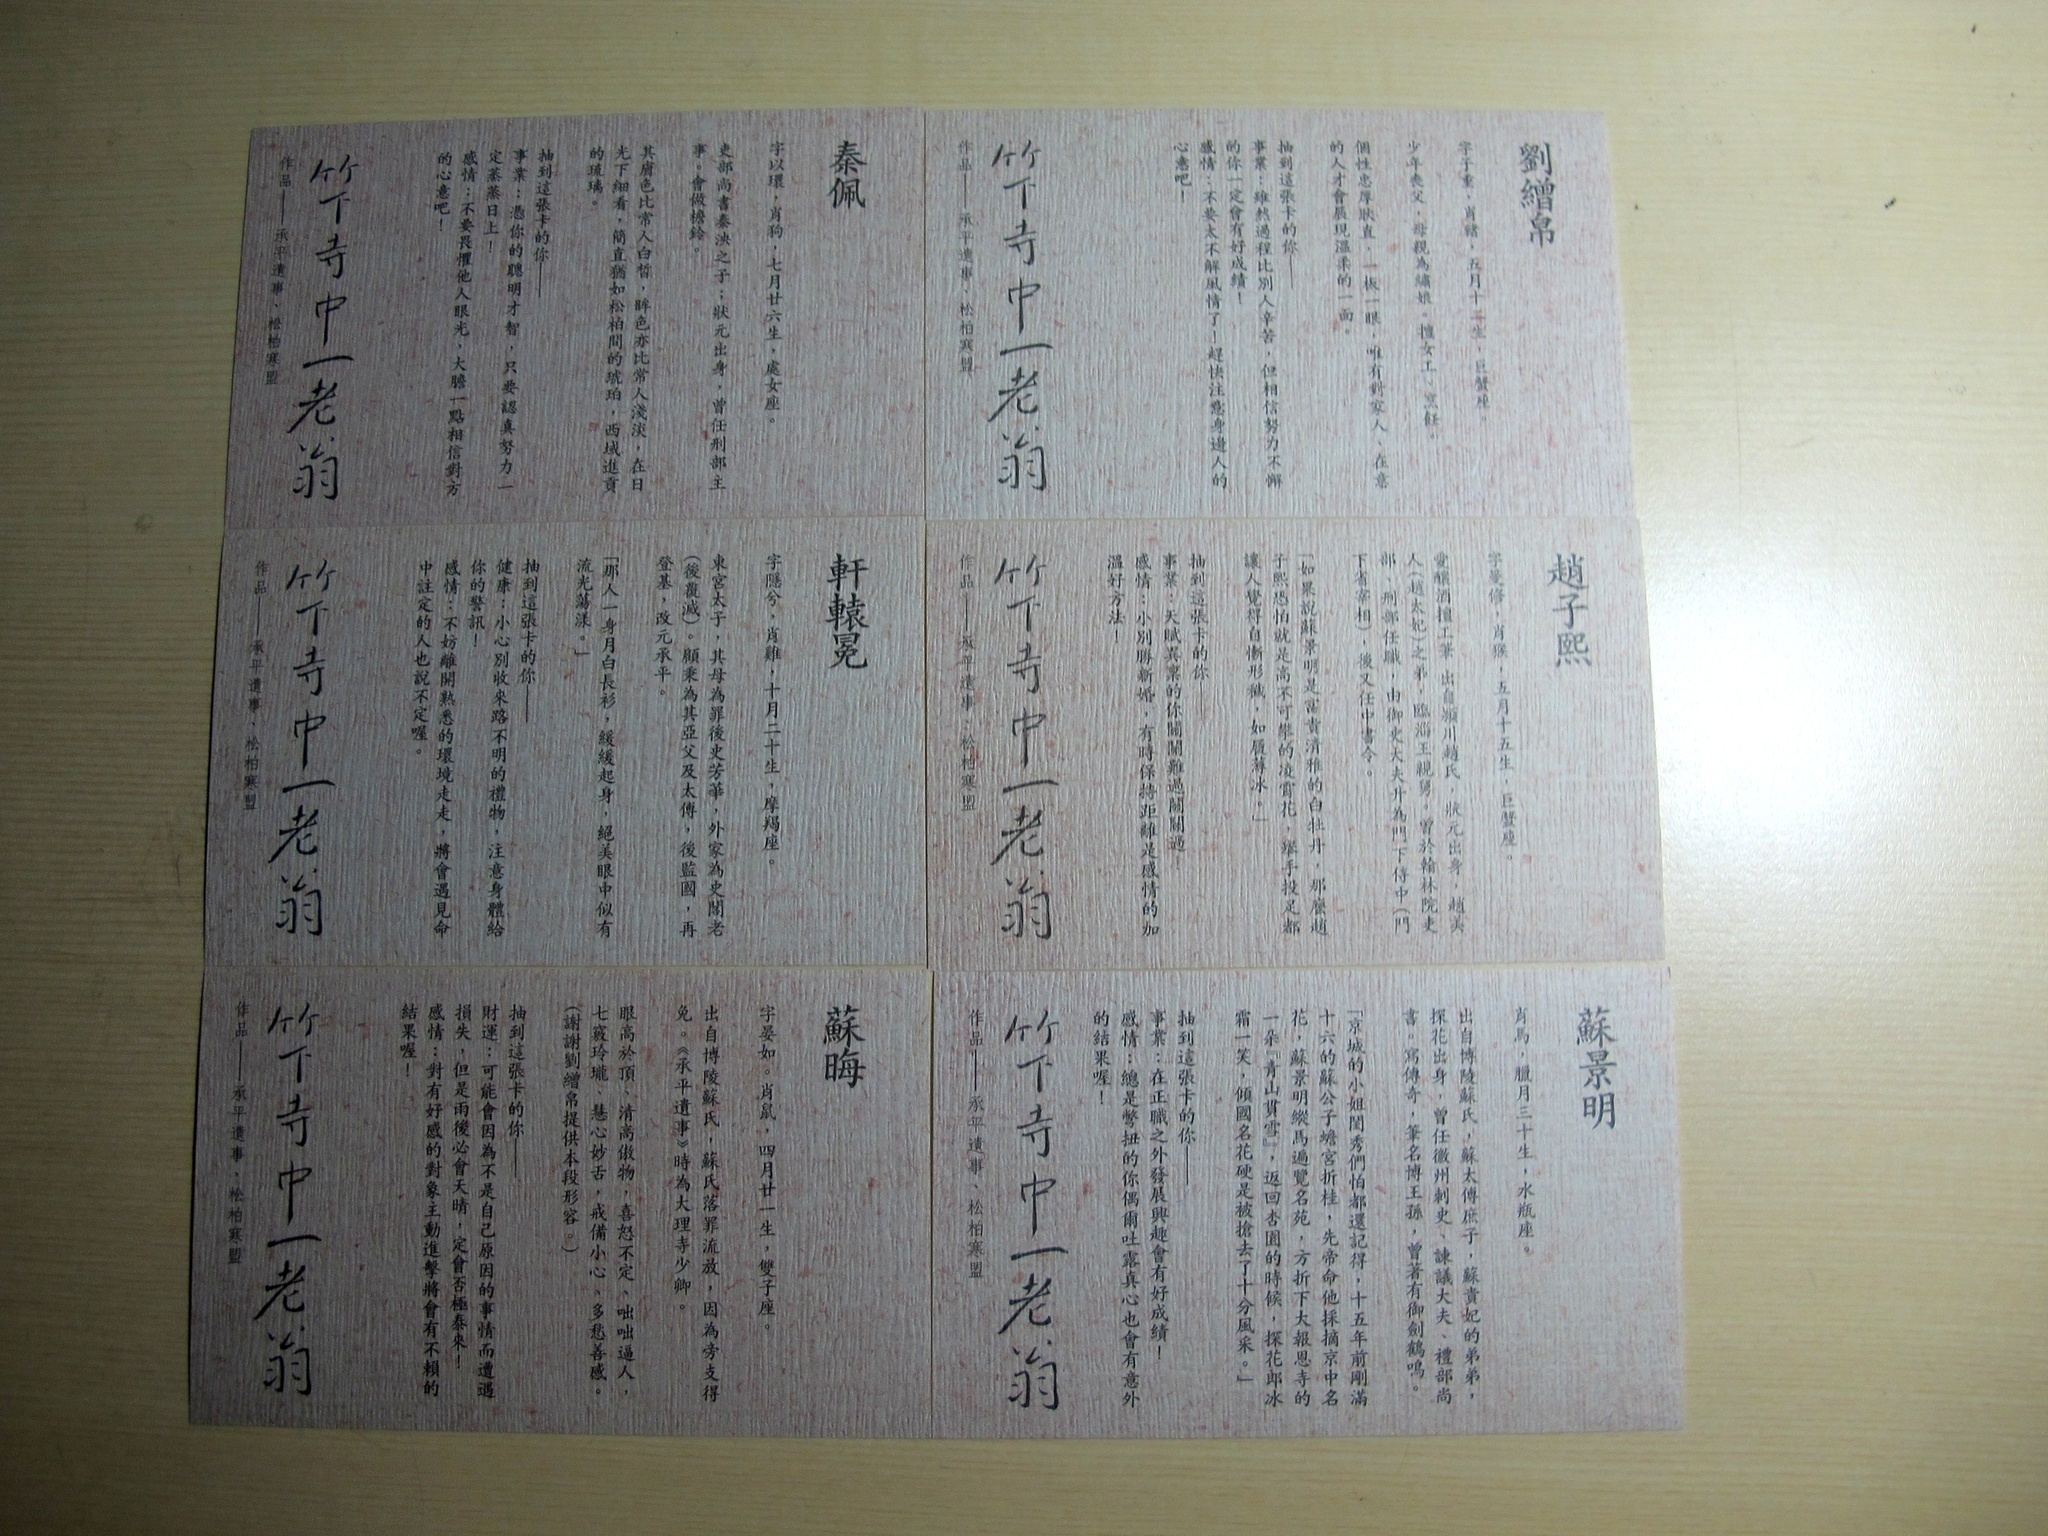 劉繒帛
字子重，肖豬，五月十二生，巨蟹座。
少年喪父，母親為繡娘。擅女工、烹飪。
個性忠厚耿直，一板一眼，唯有對家人、在意
的人才會展現溫柔的一面。
抽到這張卡的你——
事業：雖然過程比別人辛苦，但相信努力不懈
的你一定會有好成績！
感情：不要太不解風情了！趕快注意身邊人的
心意吧！
竹下寺中一老翁
作品——承平遺事、松柏寒盟
秦佩
字以環，肖狗，七月廿六生，處女座。
吏部尚書秦泱之子；狀元出身，曾任刑部主
事。會做擔鈴。
其膚色比常人白皙，眸色亦比常人淺淡，在日
光下細看，簡直猶如松柏間的琥珀，西域進貢
的琉璃。
抽到這張卡的你——
事業：憑你的聰明才智，只要認真努力一
定蒸蒸日上！
感情：不要畏懼他人眼光，大膽一點相信對方
的心意吧！
竹下寺中一老翁
作品——承平遺事、松柏寒盟
趙子熙
字曼修，肖猴，五月十五生，巨蟹座。
愛釀酒擅工筆，出自潁川趙氏，狀元出身，趙美
人（趙太妃）之弟，臨淄王親舅。曾於翰林院吏
部、刑部任職，由御史大夫升為門下侍中（門
下省宰相），後又任中書令。
「如果說蘇景明是富貴清雅的白牡丹，那麼趙
子熙恐怕就是高不可攀的凌霄花，舉手投足都
讓人覺得自慚形穢，如履薄冰。」
抽到這張卡的你——
事業：天賦異稟的你關關難過關關過！
感情：小別勝新婚，有時保持距離是感情的加
溫好方法！
竹下寺中一老翁
作品——承平遺事、松柏寒盟
軒轅冕
字隱兮，肖雞，十月二十生，摩羯座。
東宮太子，其母為罪後史芳華，外家為史閥老
（後覆滅）。顧秉為其亞父及太傅，後監國，再
登基，改元承平。
「那人一身月白長衫，緩緩起身，絕美眼中似有
流光蕩漾。」
抽到這張卡的你——
健康：小心別收來路不明的禮物，注意身體給
你的警訊！
感情：不妨離開熟悉的環境走走，將會遇見命
中註定的人也說不定喔。
竹下寺中一老翁
作品——承平遺事、松柏寒盟
蘇景明
肖馬，臘月三十生，水瓶座。
出自博陵蘇氏，蘇太傅庶子，蘇貴妃的弟弟，
探花出身，曾任徽州刺史、諫議大夫、禮部尚
書。寫傳奇，筆名博王孫，曾著有御劍鶴鳴。
「京城的小姐閨秀們怕都還記得，十五年前剛滿
十六的蘇公子蟾宮折桂，先帝命他採摘京中名
花，蘇景明縱馬遍覽名苑，方折下大報恩寺的
一朵『青山貫雪』，返回杏園的時候，探花郎冰
霜一笑，傾國名花硬是被搶去了十分風采。」
抽到這張卡的你——
事業：在正職之外發展興趣會有好成績！
感情：總是彆扭的你偶爾吐露真心也會有意外
的結果喔！
竹下寺中一老翁
作品——承平遺事、松柏寒盟
蘇晦
字晏如。肖鼠，四月廿一生，雙子座。
出自博陵蘇氏，蘇氏落罪流放，因為旁支得
免。《承平遺事》時為大理寺少卿。
眼高於頂、清高傲物，喜怒不定、咄咄逼人，
七竅玲瓏、慧心妙舌，戒備小心、多愁善感。
（謝謝劉繒帛提供本段形容。）
抽到這張卡的你——
財運：可能會因為不是自己原因的事情而遭遇
損失，但是雨後必會天晴，定會否極泰來！
感情：對有好感的對象主動進擊將會有不賴的
結果喔！
竹下寺中一老翁
作品——承平遺事、松柏寒盟